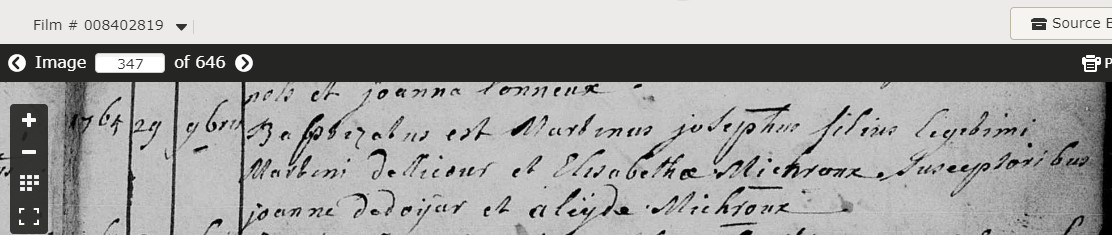 Film # 008402819
Source E
Image 347 of 646
P
nols et joanna Lonneux
1764 29 9bris Baptizatus est Martinus josephus filius legitimi
Martini deticour et Elisabethæ Michroux susceptoribus
joanne dedoijar et aleijde Michroux